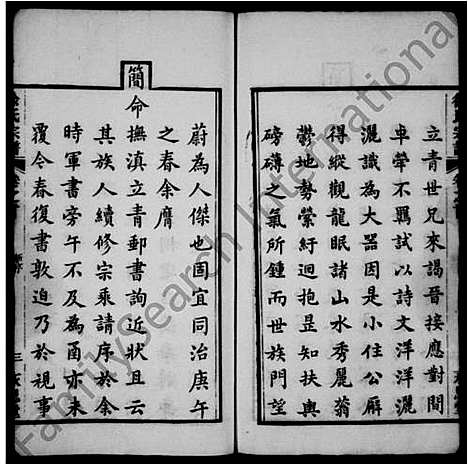 立青世兄來謁晉接應對間
車犖不羈試以詩文洋洋灑
灑識為大器因是小住公廨
得縱觀龍眠諸山水秀麗蓊
鬱地勢縈紆迴抱昱知扶輿
磅礴之氣所鍾而世族門望
蔚為人傑也固宜同治庚午
之春余膺
簡命
撫滇立青郵書詢近狀且云
其族人續修宗乘請序於余
時軍書旁午不及為函亦未
覆今春復書敦迫乃於視事
三
FamilySearch International